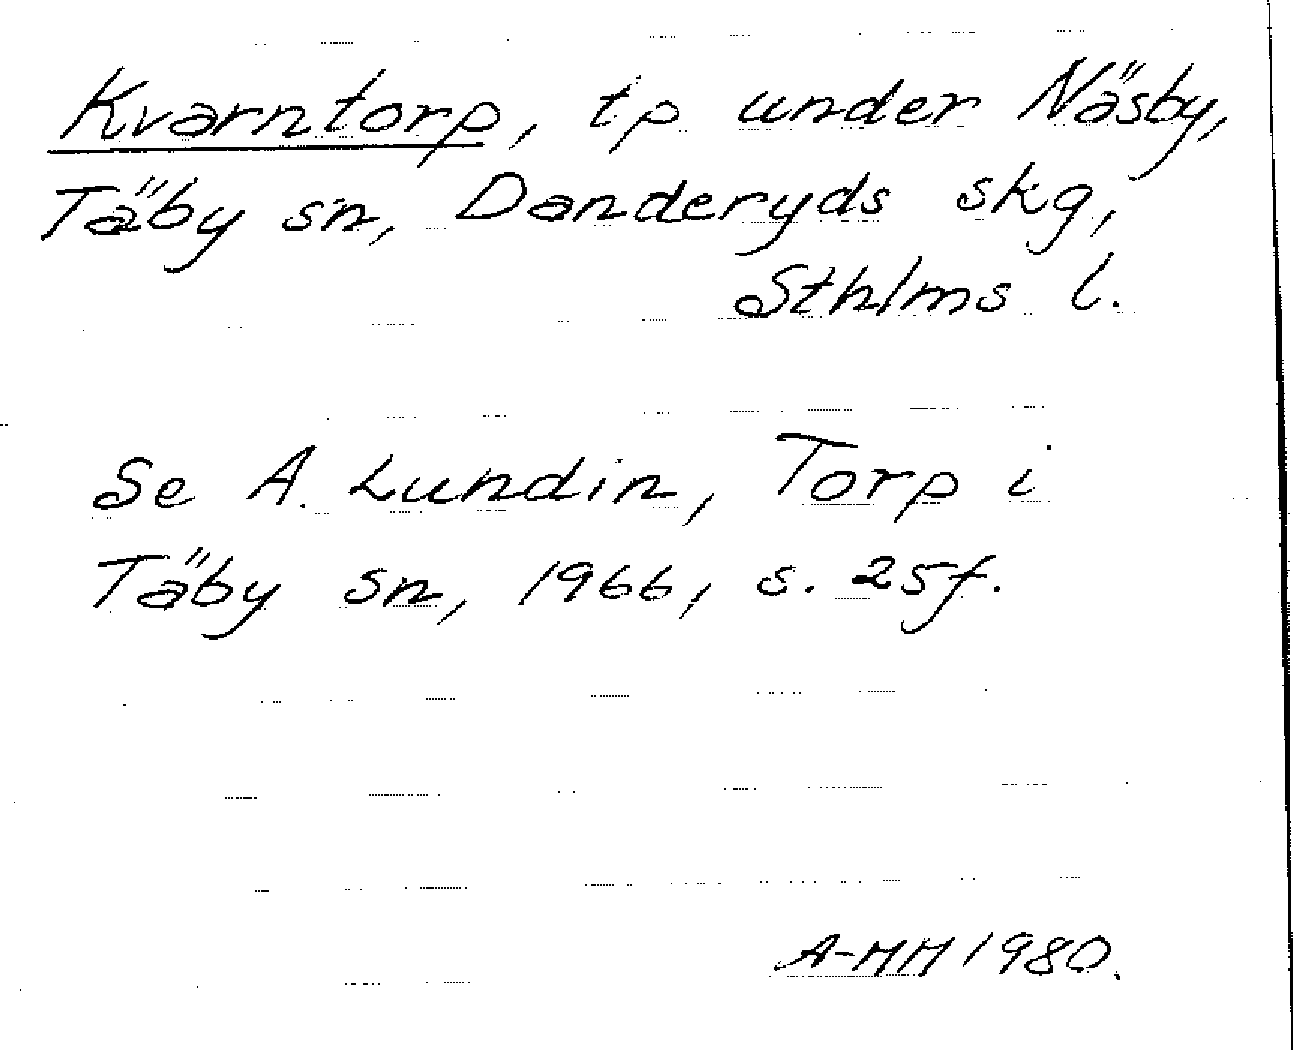 Kvarntorp, tp under Näsby,
Täby sn, Danderyds skg,
Sthlms l.
Se A. Lundin, Torp i
Täby sn, 1966, s. 25f.
A-MH 1980.